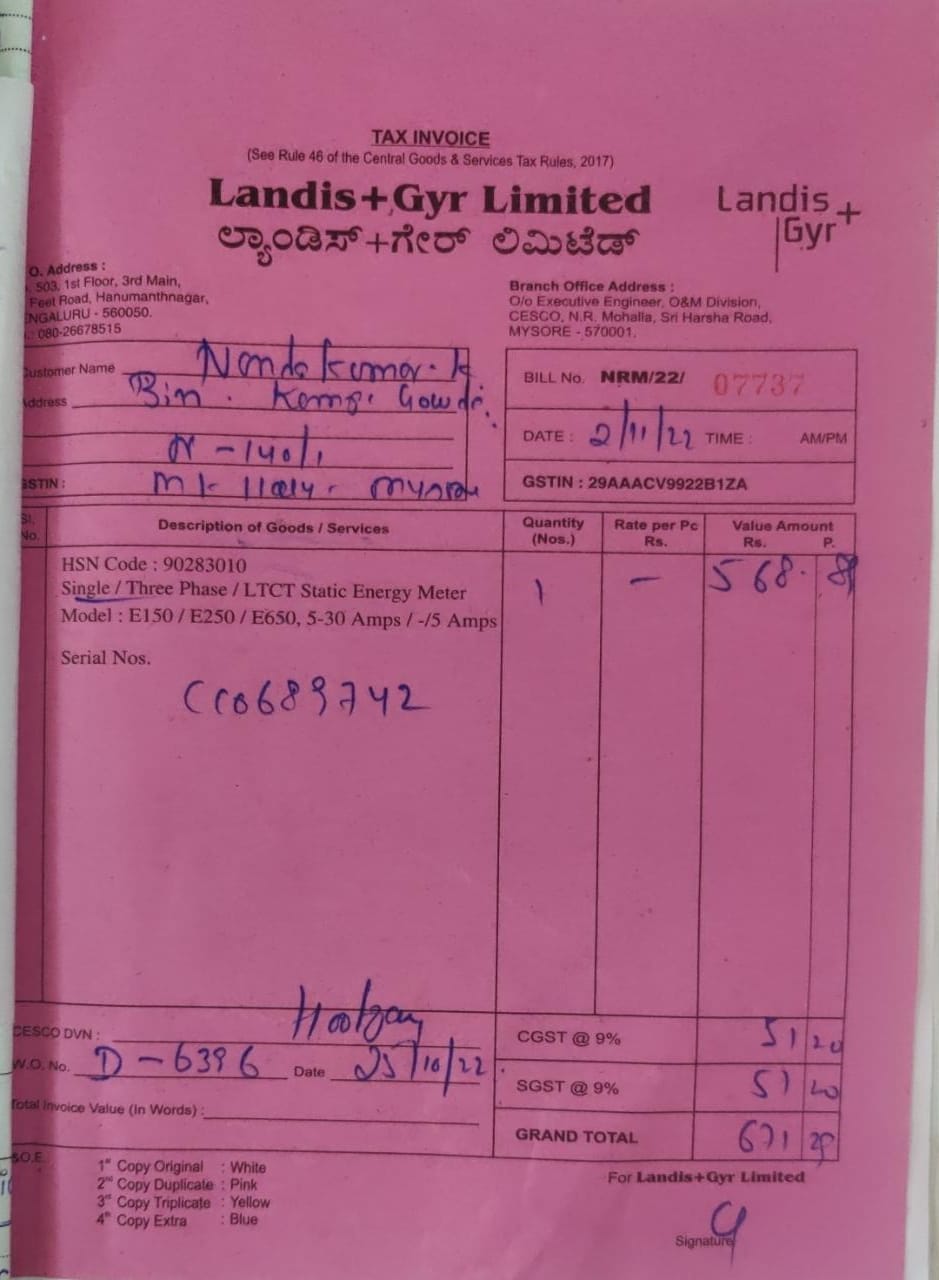 TAX INVOICE
(See Rule 46 of the Central Goods & Services Tax Rules, 2017)
Landis+Gyr Limited
ಲ್ಯಾಂಡಿಸ್+ಗೇರ್ ಲಿಮಿಟೆಡ್
Landis+
Gyr
O. Address :
503, 1st Floor, 3rd Main,
Feet Road, Hanumanthnagar,
NGALURU - 560050.
: 080-26678515
Branch Office Address :
O/o Executive Engineer, O&M Division,
CESCO, N.R. Mohalla, Sri Harsha Road,
MYSORE - 570001.
Customer Name Nandakumar. K
Address Bin. Kempe Gowda.
N - 140/1
GSTIN :
BILL No. NRM/22/ 07737
DATE : 2/11/22 TIME : AM/PM
GSTIN : 29AAACV9922B1ZA
Sl. No. Description of Goods / Services Quantity (Nos.) Rate per Pc Rs. Value Amount Rs. P.
HSN Code : 90283010
Single / Three Phase / LTCT Static Energy Meter 1 - 568.
Model : E150 / E250 / E650, 5-30 Amps / -/5 Amps
Serial Nos.
CC0689742
CESCO DVN :
W.O. No. D-6396 Date 25/10/22
Total Invoice Value (In Words) :
CGST @ 9% 51 20
SGST @ 9% 51 20
GRAND TOTAL 671
S.O.E.
1st Copy Original : White
2nd Copy Duplicate : Pink
3rd Copy Triplicate : Yellow
4th Copy Extra : Blue
For Landis+Gyr Limited
Signature